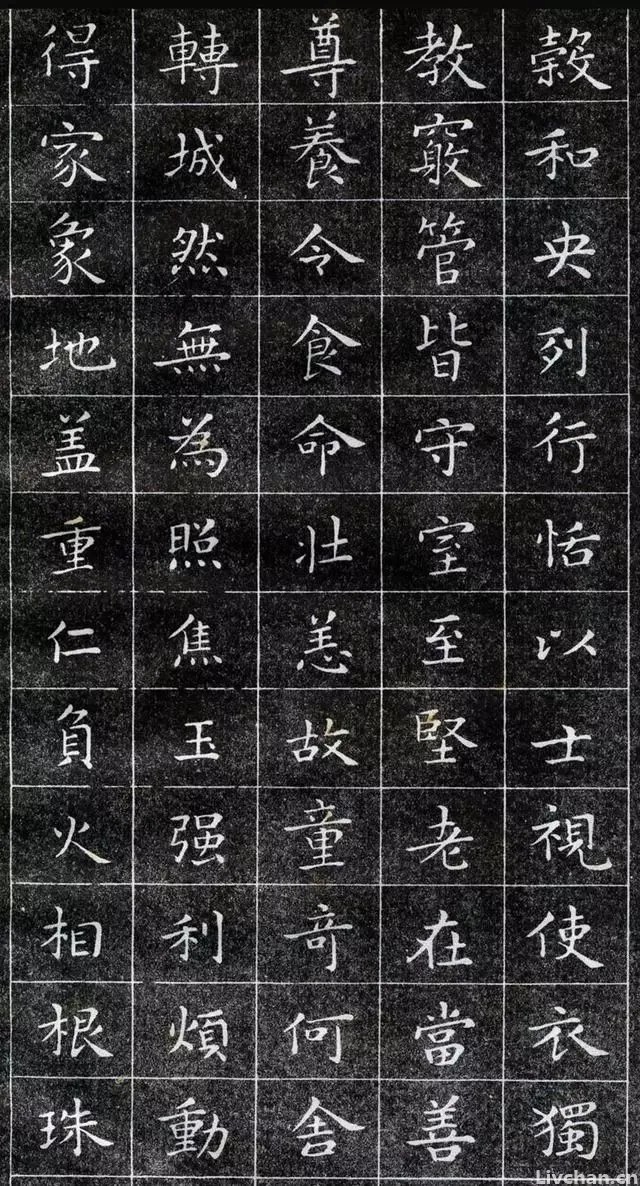 穀和央列行恬以士視使衣獨
教管皆守室至堅老在當善
尊養令食命壯恙故童奇何舍
轉城然無為照焦玉强利煩動
得家象地盖重仁負火相根珠
Livchan.cn